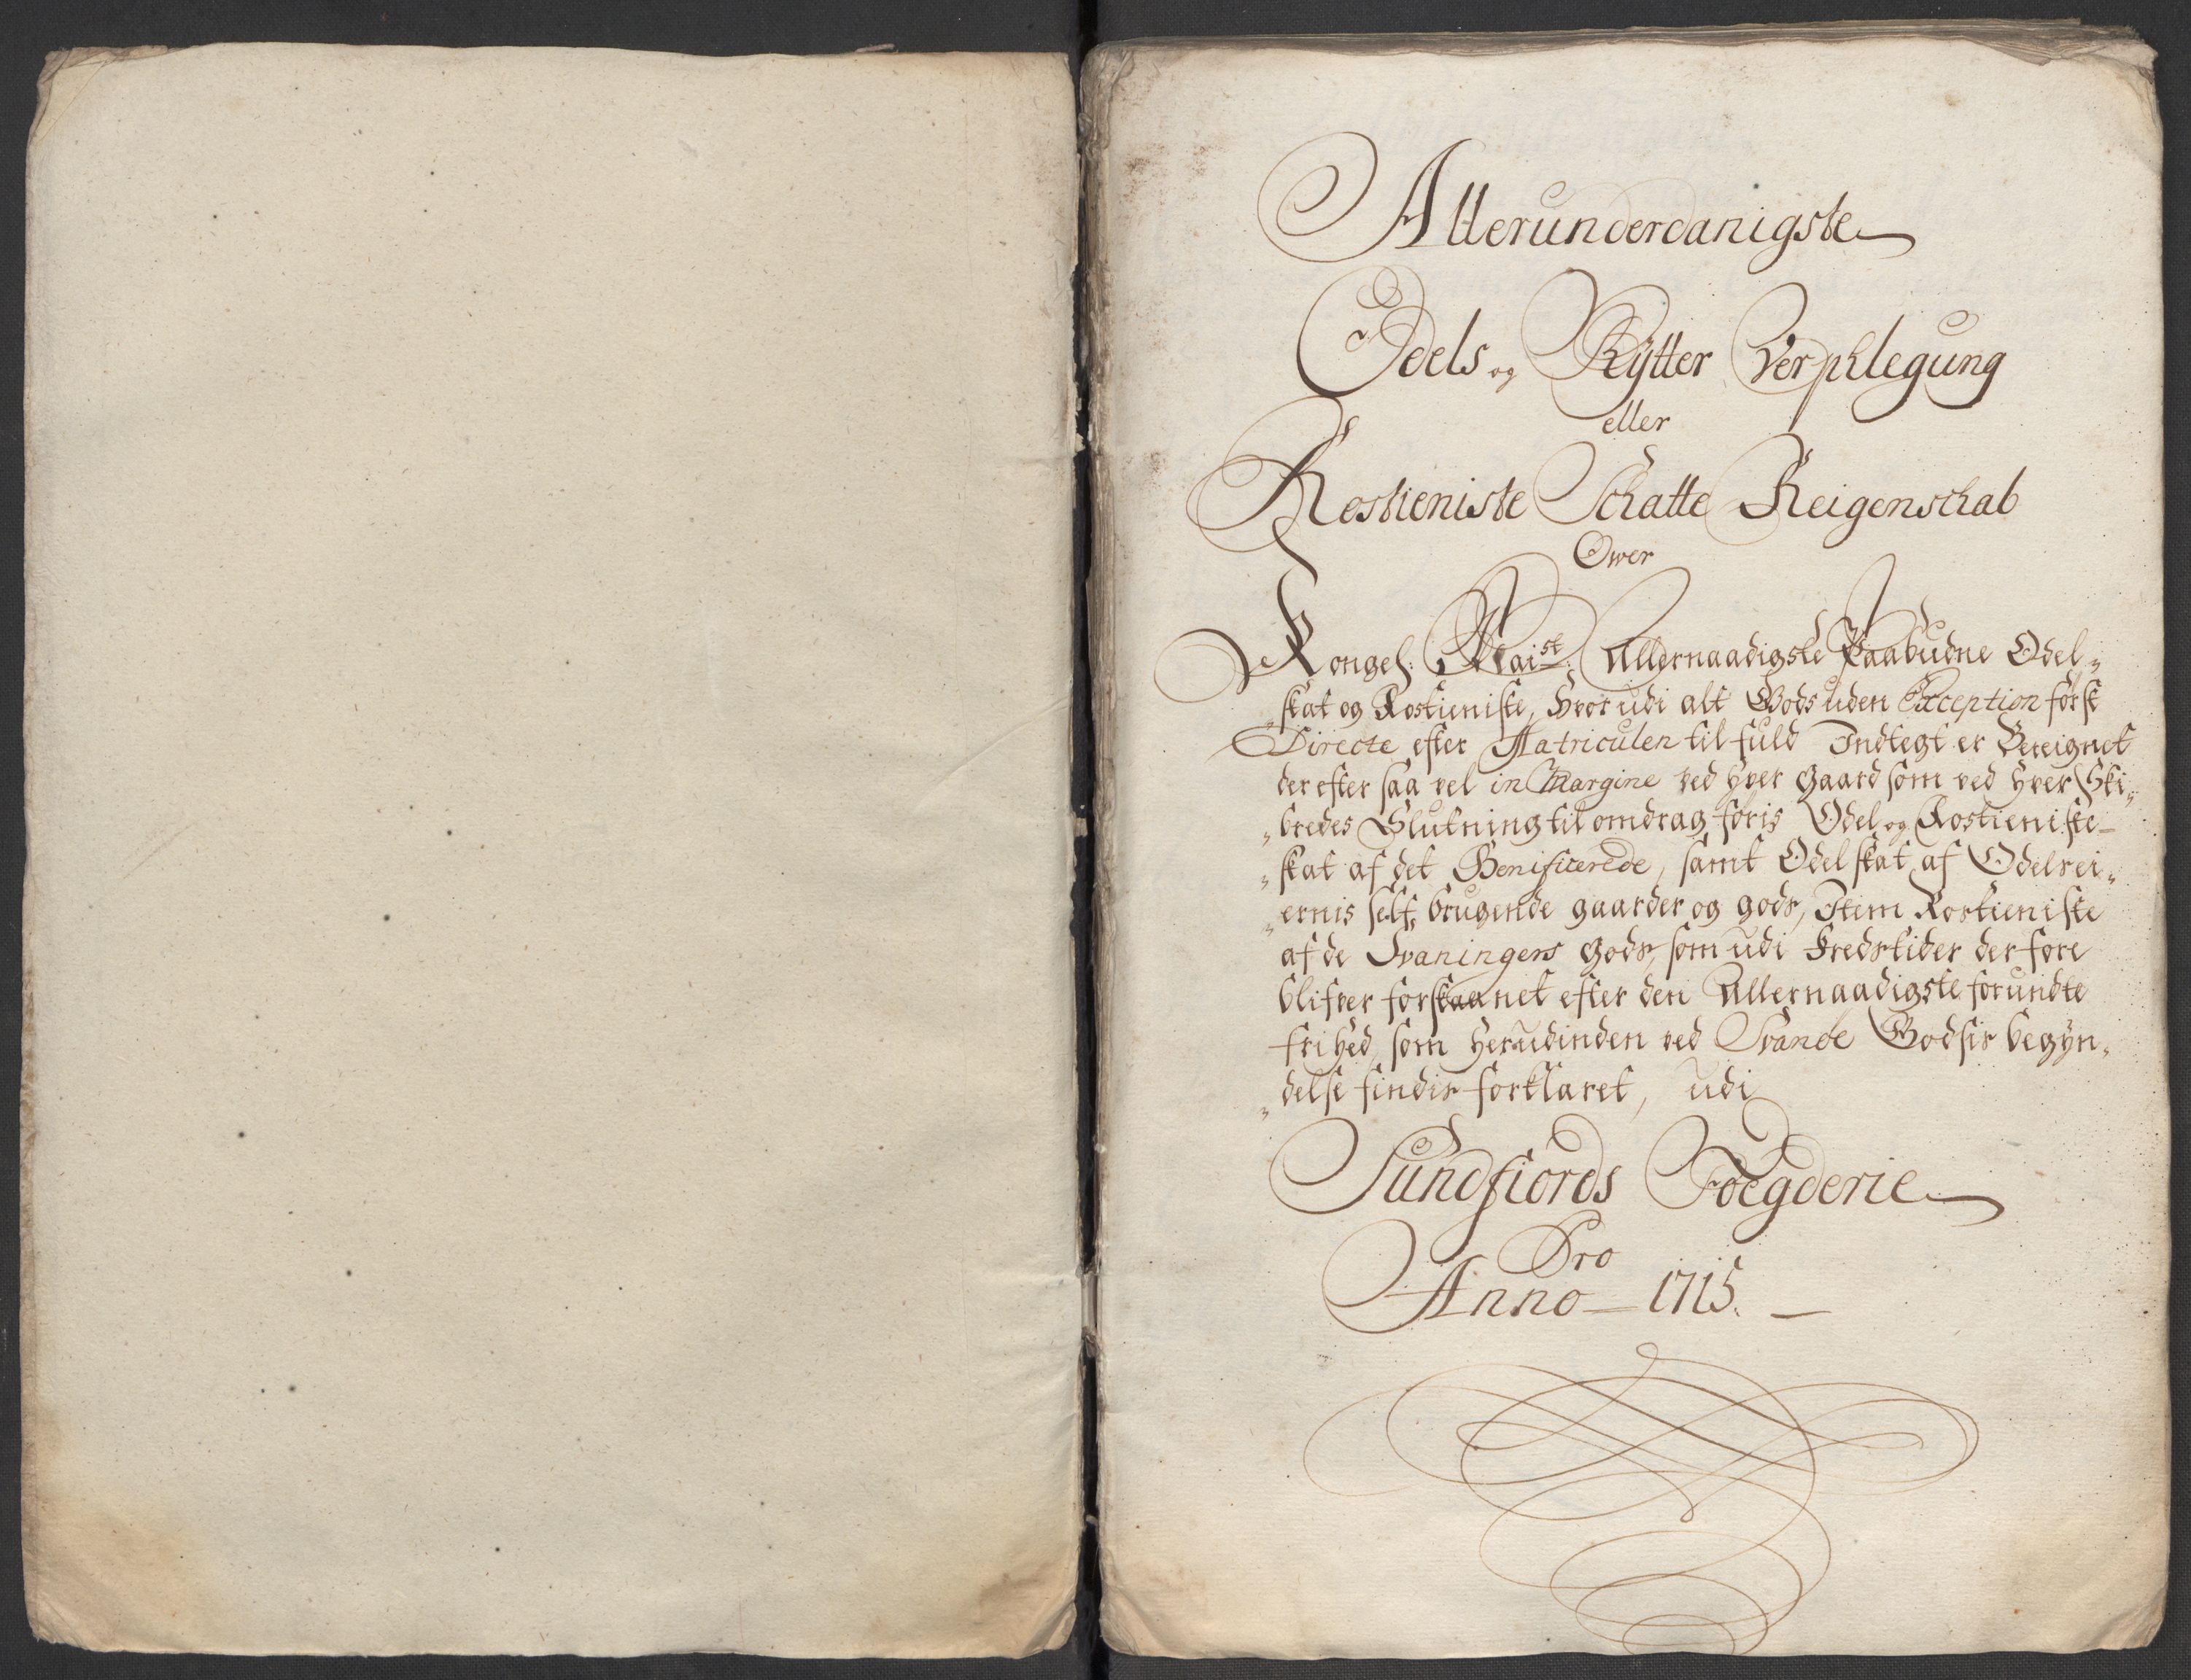 Allerunderdanigste
Odels og Rÿtter Verphlegung
eller
Rostieniste Schatte Reigenschab
Ower
Kongel: Maist: Allernaadigste Paabudne Odel„
„skat og Rostieniste, Hvorudi alt Gods uden Exception først
Directe efter Matriculen til fuld Indtegt er Bereignet
der efter saa vel in Margine ved hver Gaard som ved hver Ski„
„bredes Slutning til omdrag føris Odel og Rostieniste
„skat af det Benificerede, samt Odelskat af Odelsei„
„ernis self brugende gaarder og gods, Item Rostieniste
af de Svaningers gods, som udi Fredstider der fore
blifver forskaanet efter den Allernaadigste forundte
frihed, som herudinden ved Svanøe Godsis begÿn„
„delse findis forklaret, udi
Sundfiords Foegderie
Pro
Anno 1715.